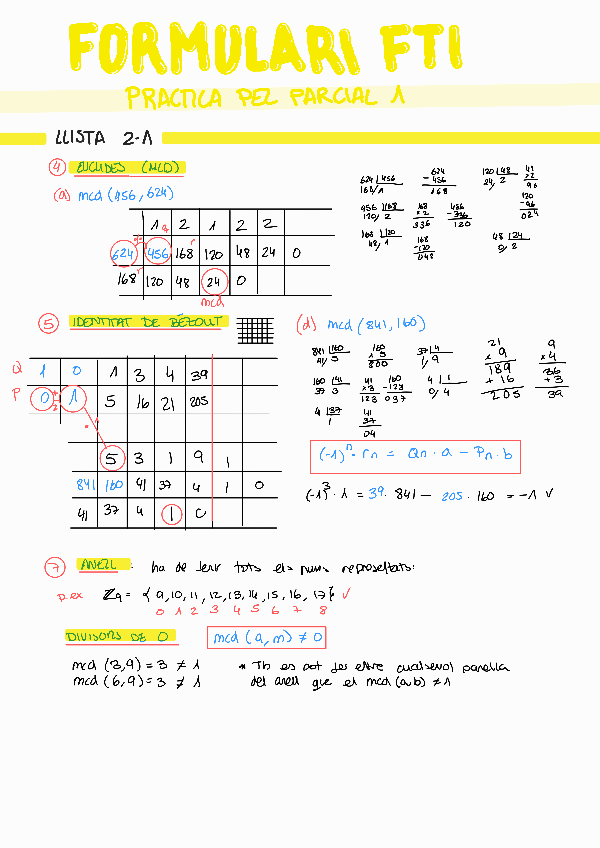 FORMULARI FTI
PRACTICA PEL PARCIAL 1
LLISTA 2-1
4 EUCLIDES (MCD)
(a) mcd (456, 624)
1 2 1 2 2
624 456 168 120 48 24 0
168 120 48 24 0
mcd
624 | 456
168/1
624
- 456
168
120 | 48
24/ 2
41
x 2
96
120
- 96
024
456 | 168
120/ 2
168
x 2
336
456
- 336
120
168 | 120
48/ 1
168
- 120
048
48 | 24
0/ 2
5 IDENTITAT DE BÉZOUT
Q 1 0 1 3 4 39
P 0 1 5 16 21 205
5 3 1 9 1
841 160 41 37 4 1 0
41 37 4 1 0
(d) mcd (841, 160)
841 | 160
41/ 5
160
x 5
800
37 | 4
1/ 9
21
x 9
189
+ 16
205
9
x 4
36
+ 3
39
160 | 41
37 3
41
x 3
123
160
- 123
037
4 | 1
0/ 4
4 | 37
1
41
37
04
(-1)ⁿ · rn = Qn · a - Pn · b
(-1)³ · 1 = 39 · 841 - 205 · 160 = -1 √
7 ANELL : ha de tenir tots els nums representats:
p.ex ℤ9 = { 9, 10, 11, 12, 13, 14, 15, 16, 17 } √
0 1 2 3 4 5 6 7 8
DIVISORS DE 0 mcd (a, m) ≠ 0
mcd (3,9) = 3 ≠ 1
mcd (6,9) = 3 ≠ 1
* Tb es pot fer entre qualsevol parella
del anell que el mcd (a,b) ≠ 1